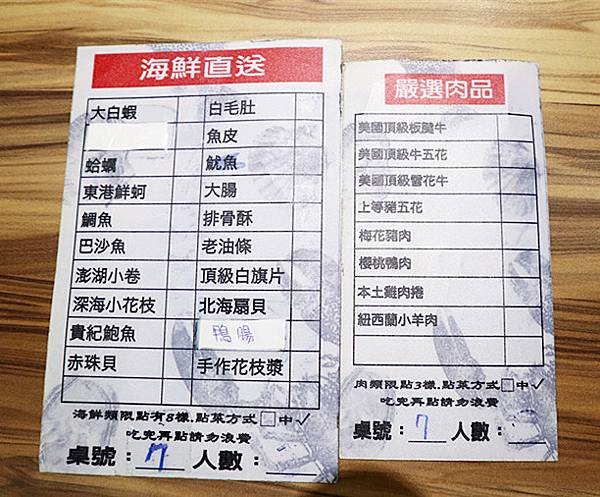 海鮮直送
大白蝦 白毛肚
魚皮
蛤蠣 魷魚
東港鮮蚵 大腸
鯛魚 排骨酥
巴沙魚 老油條
澎湖小卷 頂級白旗片
深海小花枝 北海扇貝
貴紀鮑魚 鴨腸
赤珠貝 手作花枝漿
海鮮類限點有8樣.點菜方式□中✓
吃完再點請勿浪費
桌號：7 人數：
嚴選肉品
美國頂級板腱牛
美國頂級牛五花
美國頂級雪花牛
上等豬五花
梅花豬肉
櫻桃鴨肉
本土雞肉捲
紐西蘭小羊肉
肉類限點3樣.點菜方式□中✓
吃完再點請勿浪費
桌號：7 人數：